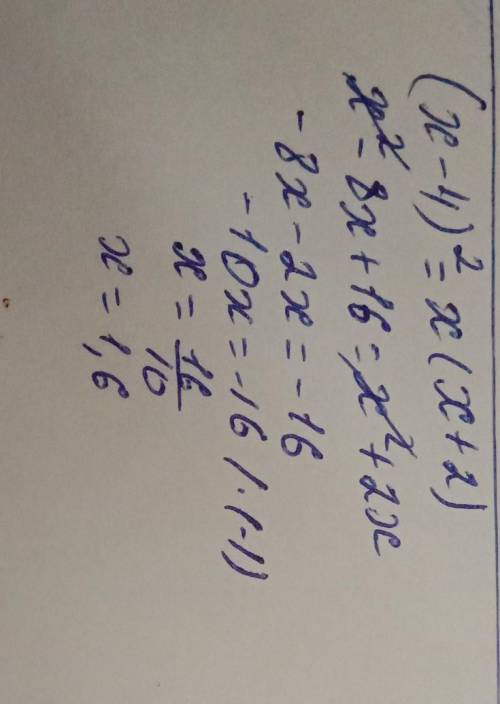 (x-4)² = x(x+2)
x² - 8x + 16 = x² + 2x
-8x - 2x = -16
-10x = -16 / ·(-1)
x = 16/10
x = 1,6